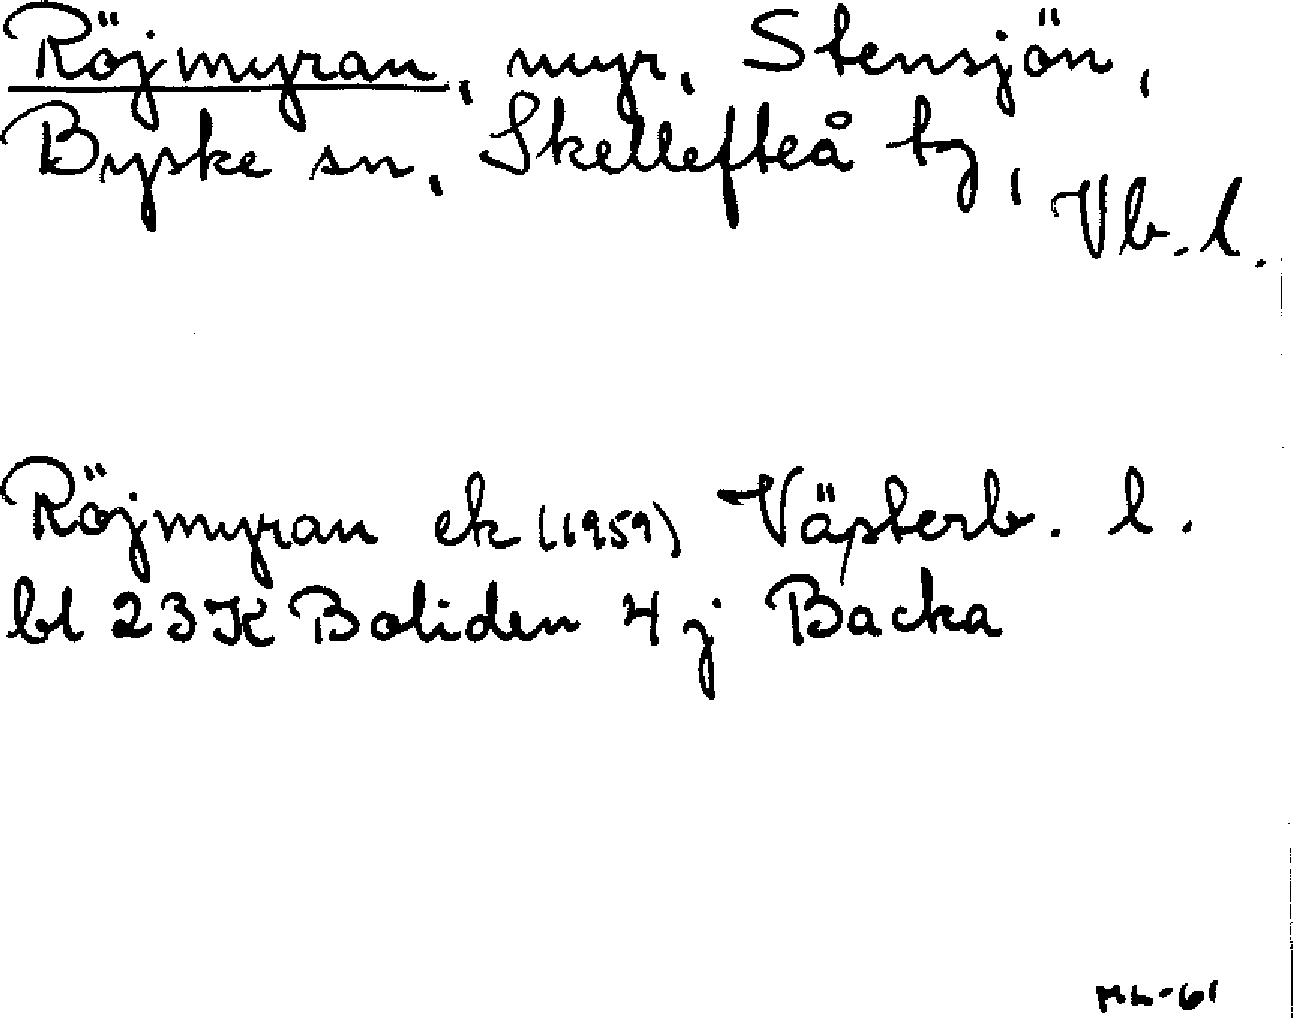 Röjmyran, myr, Stensjön,
Byske sn, Skellefteå tg, Vb. l.
Röjmyran ek (1959) Västerb. l.
bl 23K Boliden 4 j Backa
ML-61